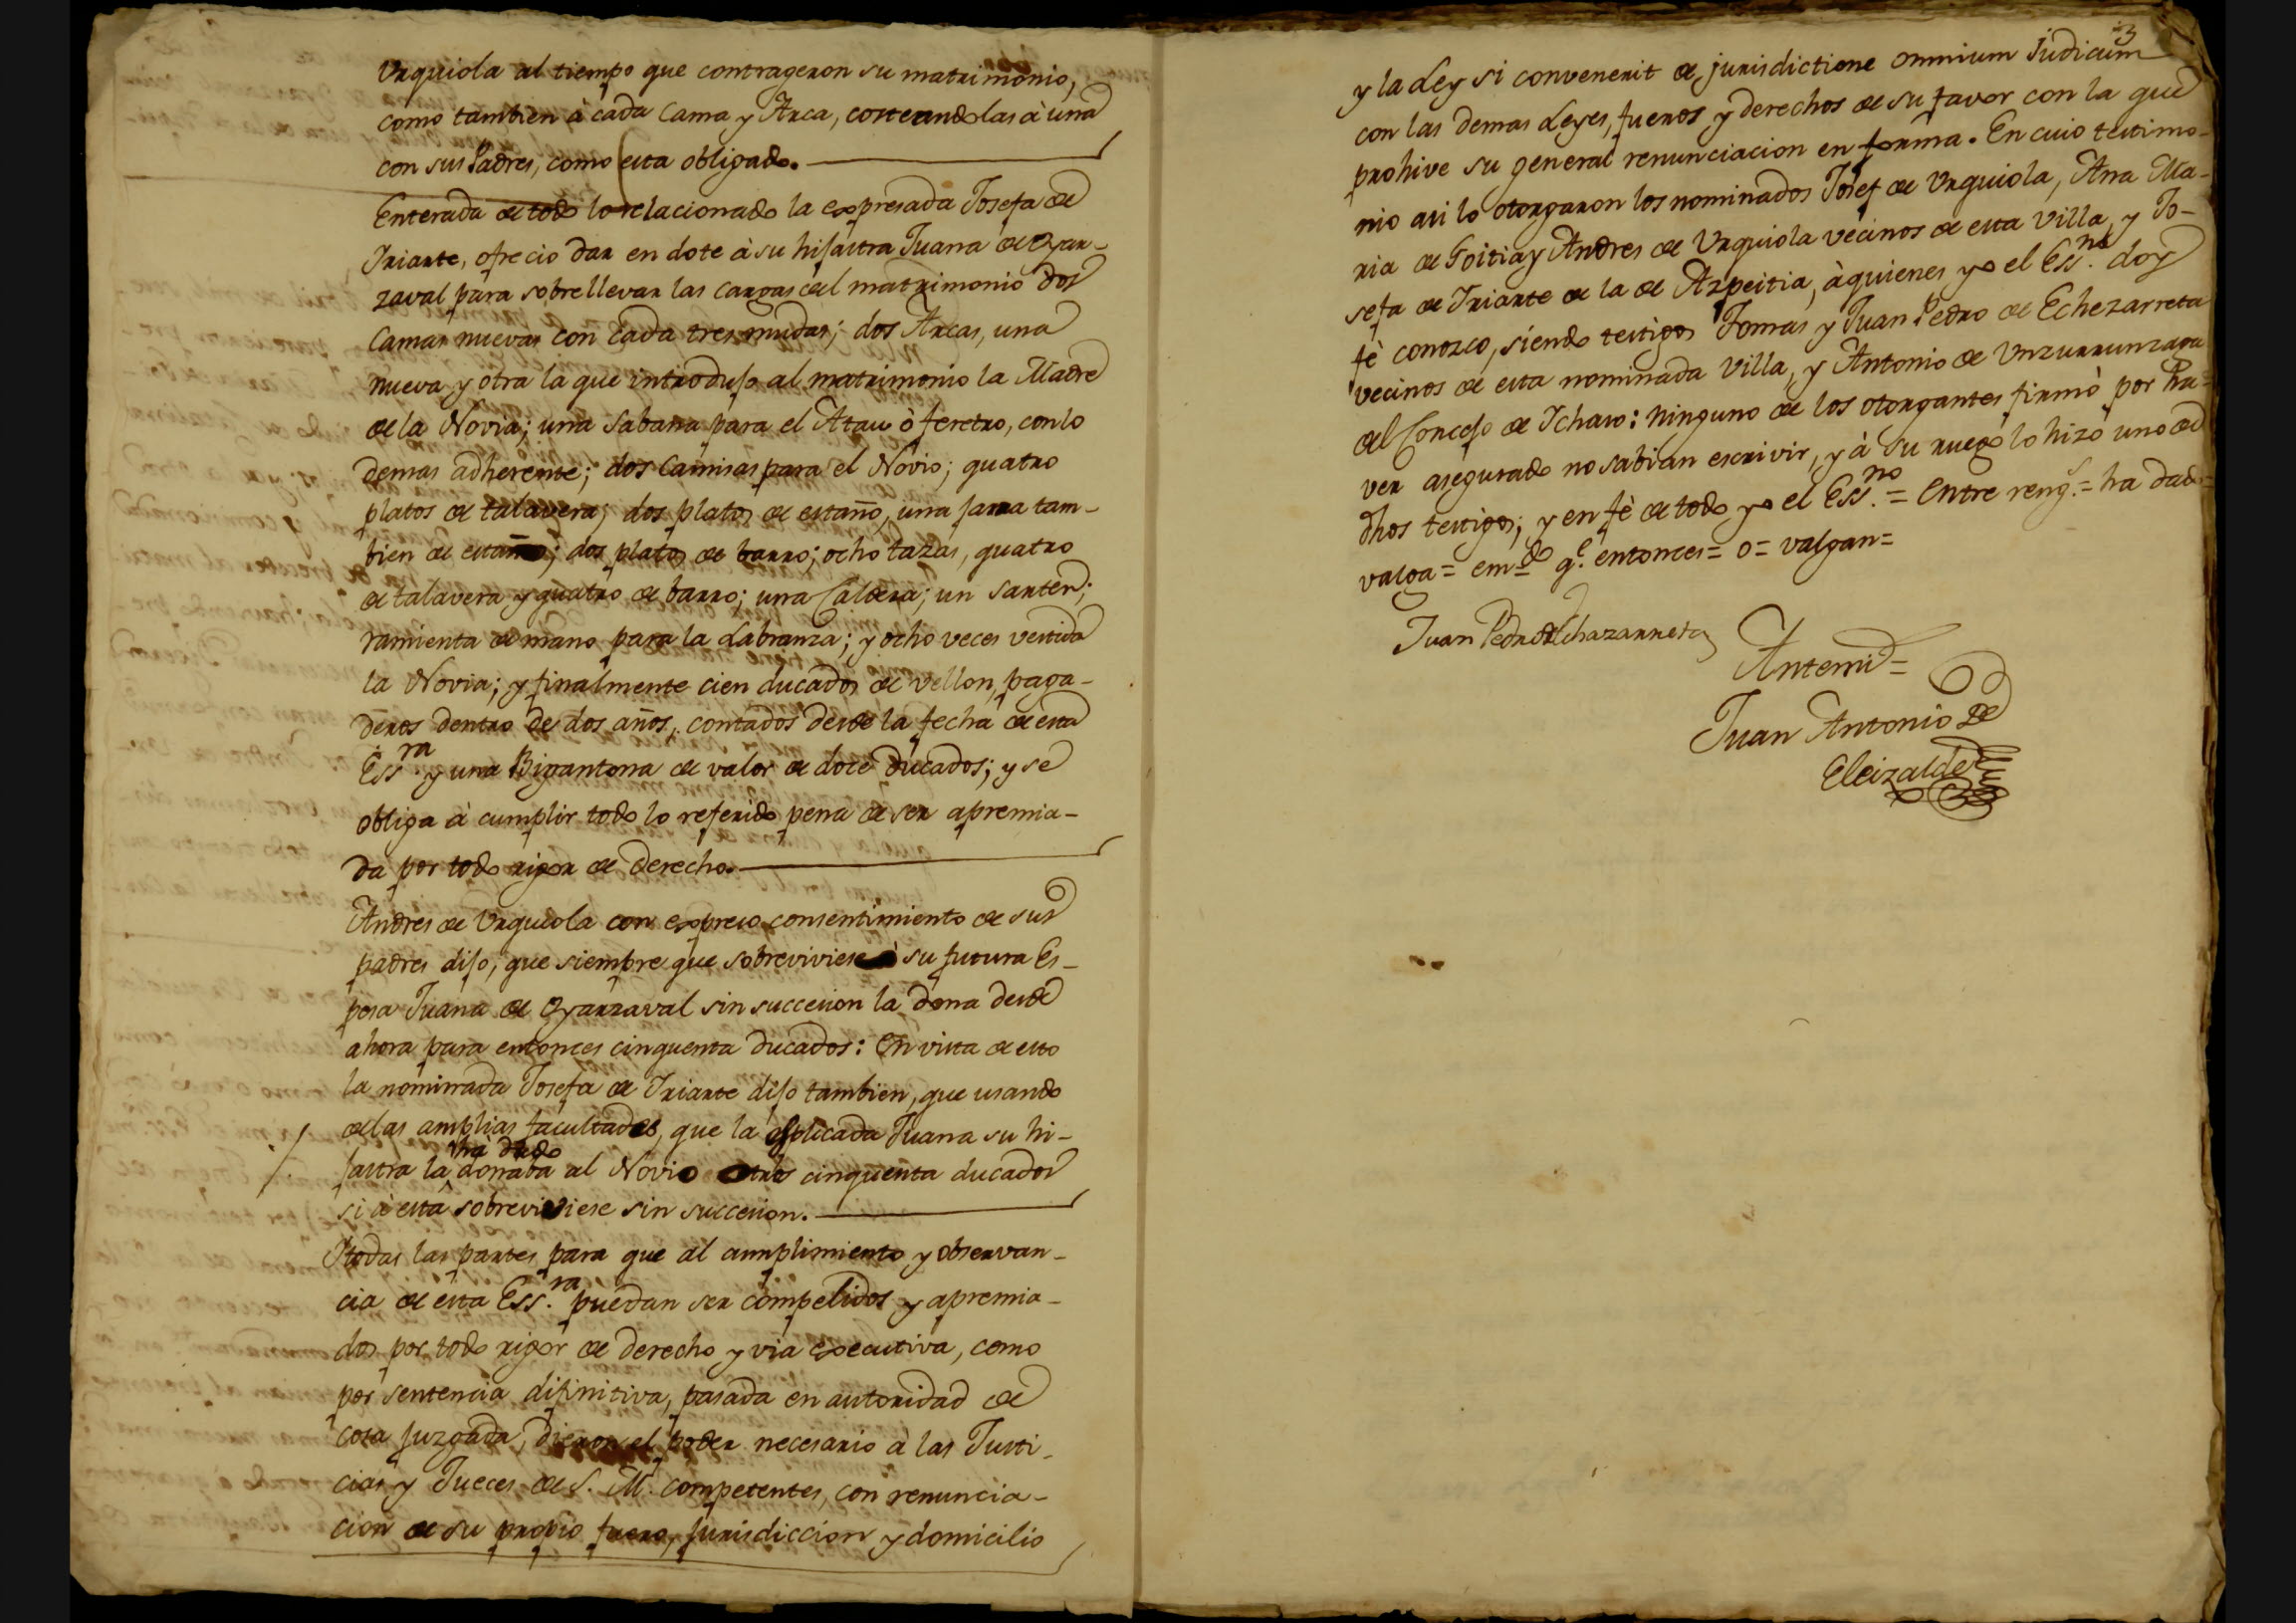 Urquiola al tiempo que contrageron su matrimonio,
como tambien à cada Cama y Arca, costeandolas à una
con sus Padres, como esta obligado.
Enterada de todo lo relacionado la expresada Josefa de
Iriarte, ofrecio dar en dote à su hijastra Juana de Oyar-
zaval para sobrellevar las cargas del matrimonio dos
Camas nuevas con cada tres mudas; dos Arcas, una
nueva y otra la que introdujo al matrimonio la Madre
de la Novia; una Sabana para el Atau ò feretro, con lo
demas adherente; dos Camisas para el Novio; quatro
platos de talavera; dos platos de estaño, una jarra tam-
bien de estaño; dos platos de barro; ocho tazas, quatro
de talavera y quatro de barro; una Caldera; un Sarten;
ramienta de mano para la Labranza; y ocho veces vestida
la Novia; y finalmente cien ducados de vellon, paga-
deros dentro de dos años, contados desde la fecha de esta
Ess.ra y una Bigantona de valor de doce Ducados; y se
obliga à cumplir todo lo referido pena de ser apremia-
da por todo rigor de Derecho.
Andres de Urquiola con expreso consentimiento de sus
padres dijo, que siempre que sobreviviese à su futura Es-
posa Juana de Oyarzaval sin succesion la dona desde
ahora para entonces cinquenta Ducados: En vista de esto
la nominada Josefa de Iriarte dijo tambien, que usando
de las amplias facultades, que la explicada Juana su hi-
ha dado
jastra la donaba al Novio otros cinquenta ducados
si à esta sobreviviese sin succesion.
Y todas las partes para que al cumplimiento y observan-
cia de esta Ess.ra puedan ser compelidos y apremia-
dos por todo rigor de Derecho y via executiva, como
por sentencia difinitiva, pasada en autoridad de
cosa juzgada, dieron el poder necesario à las Justi-
cias y Jueces de S. M. competentes, con renuncia-
cion de su propio fuero, jurisdiccion y domicilio
3
y la Ley si convenerit de jurisdictione omnium Judicum
con las demas Leyes, fueros y derechos de su favor con la que
prohive su general renunciacion en forma. En cuio testimo-
nio asi lo otorgaron los nominados Josef de Urquiola, Ana Ma-
ria de Goitia y Andres de Urquiola vecinos de esta Villa, y Jo-
sefa de Iriarte de la de Azpeitia, à quienes yo el Ess.no doy
fè conozco, siendo testigos Tomas y Juan Pedro de Echezarreta
vecinos de esta nominada Villa, y Antonio de Unzurrunzaga
del Concejo de Ichaso: ninguno de los otorgantes firmò por ha-
ver asegurado no sabian escrivir, y à su ruego lo hizo uno de
dhos testigos; y en fè de todo yo el Ess.no = Entre reng.s = ha dado =
valga = em.do q.e entonces = o = valgan =
Juan Pedro de Echazarreta
Antemi =
Juan Antonio de
Eleizalde